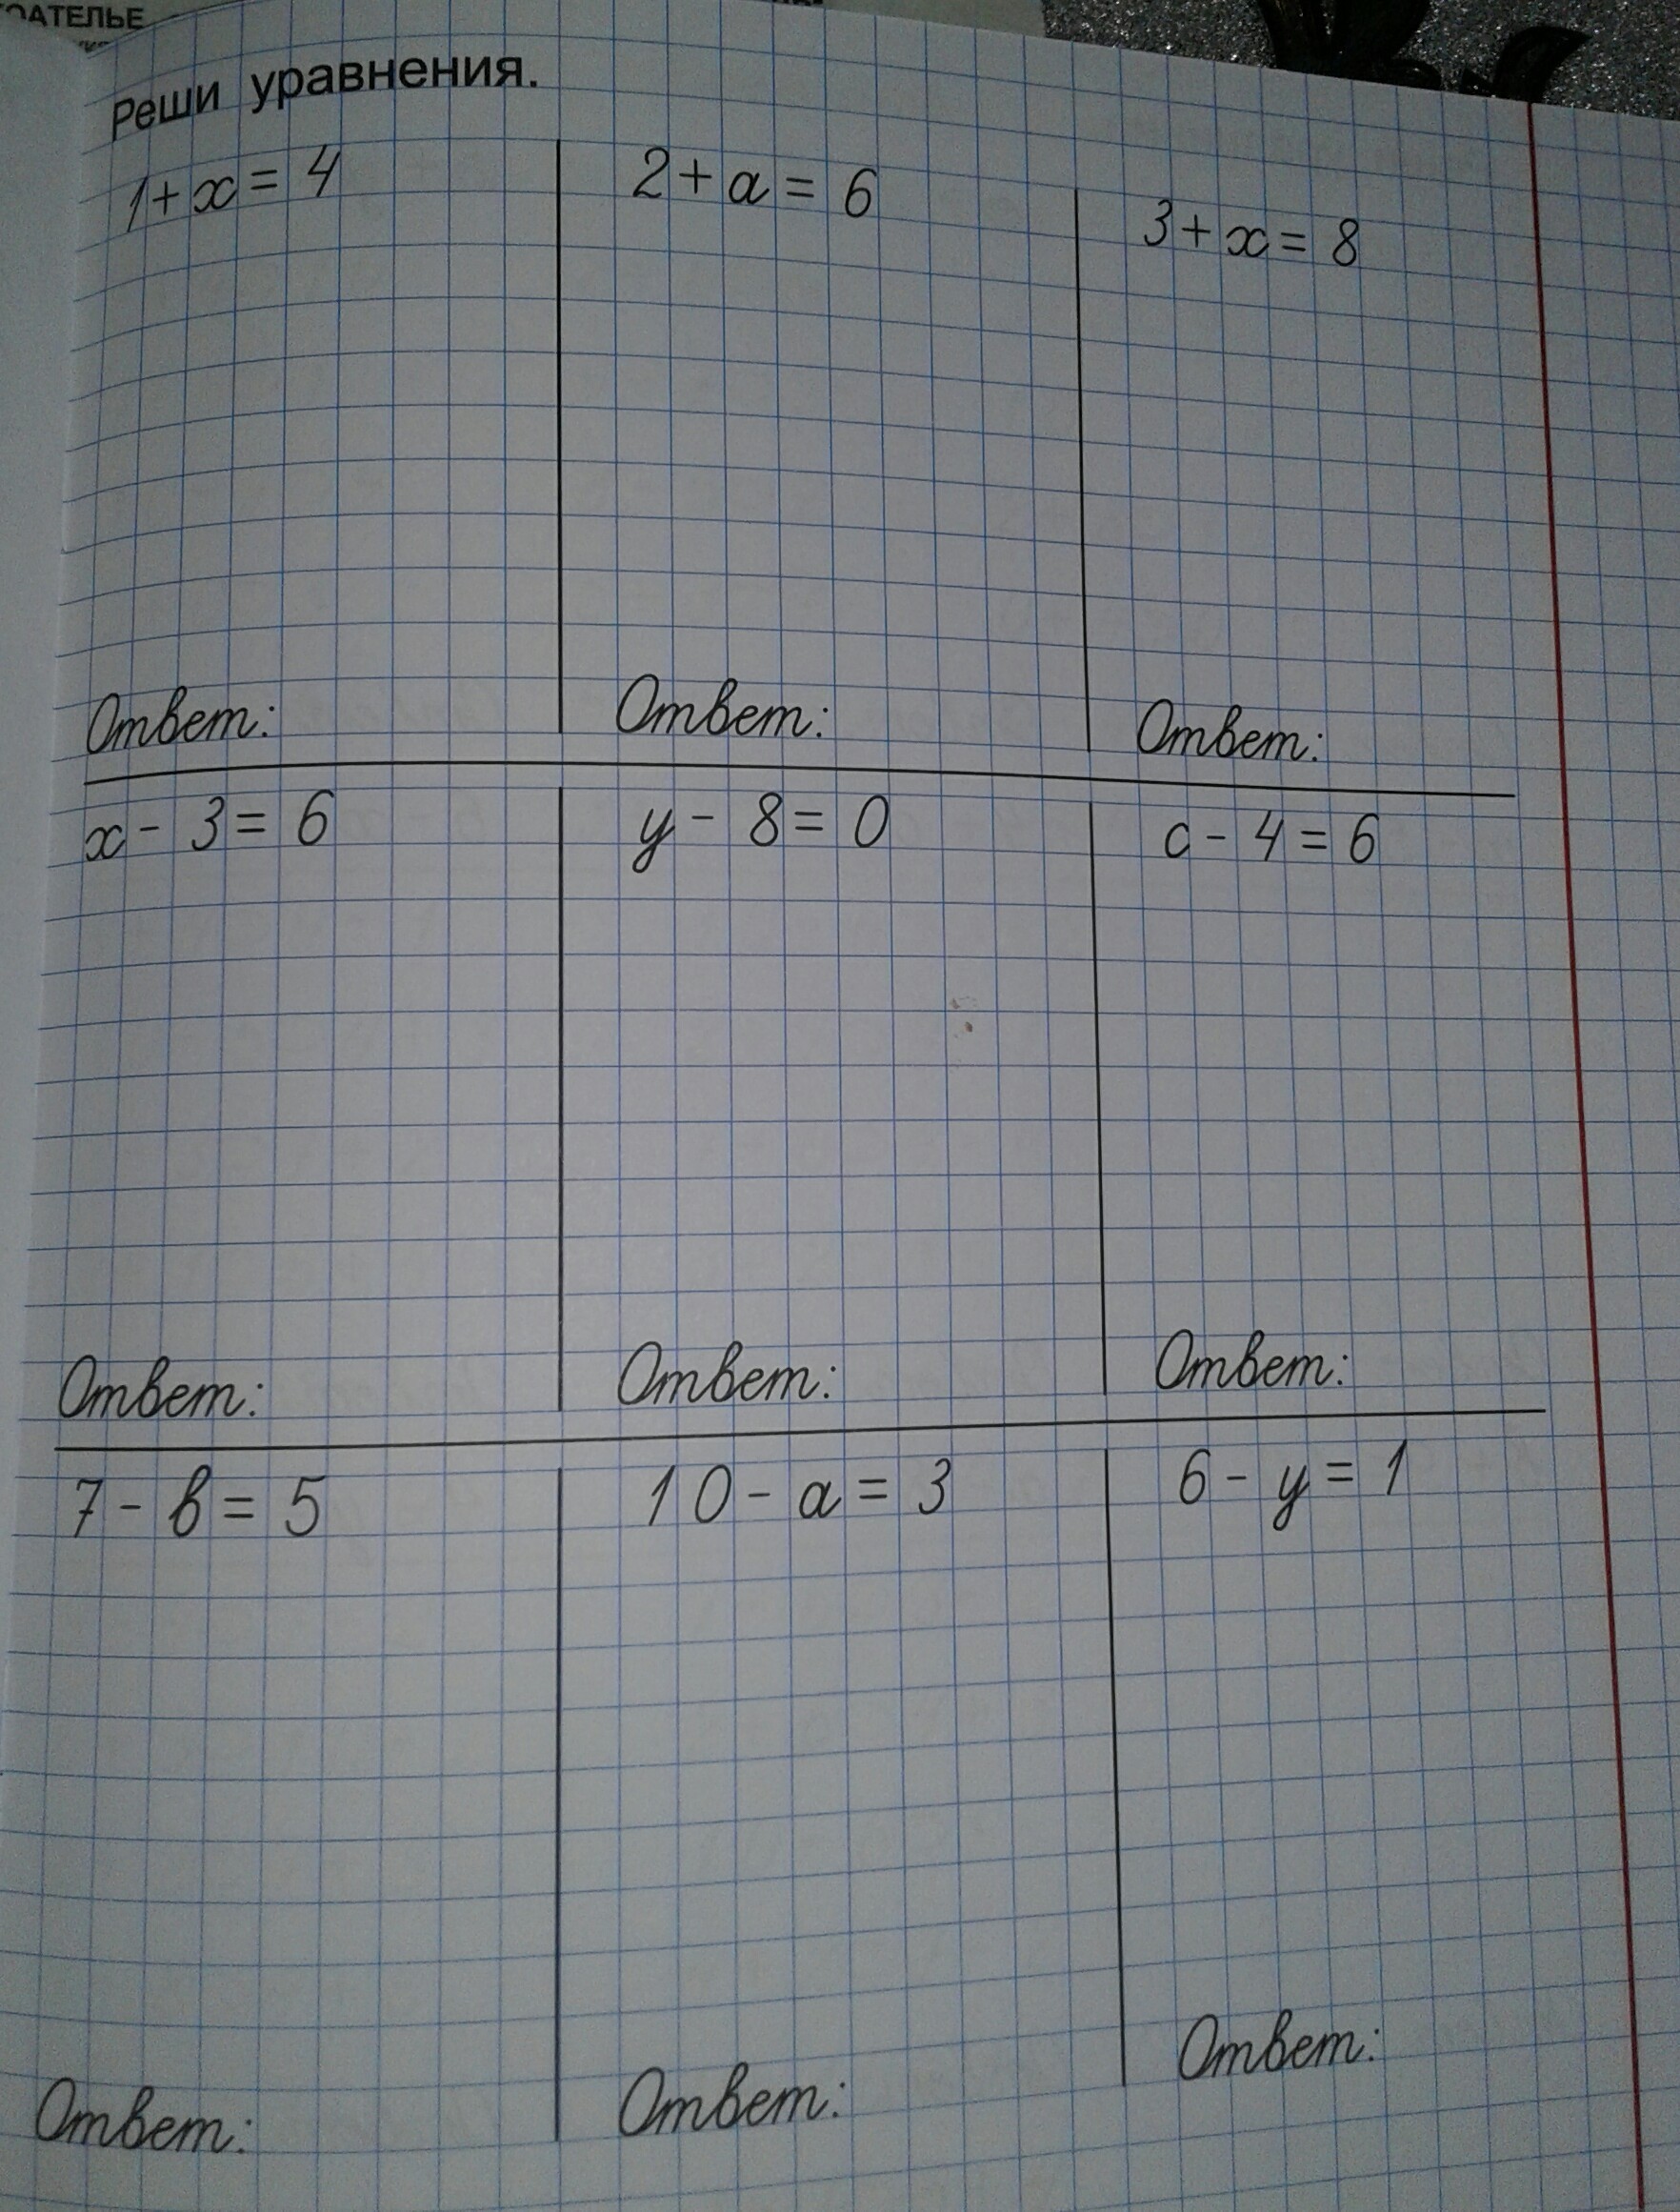 Реши уравнения.
1 + x = 4
2 + a = 6
3 + x = 8
Ответ:
Ответ:
Ответ:
x - 3 = 6
y - 8 = 0
c - 4 = 6
Ответ:
Ответ:
Ответ:
7 - в = 5
10 - a = 3
6 - y = 1
Ответ:
Ответ:
Ответ: